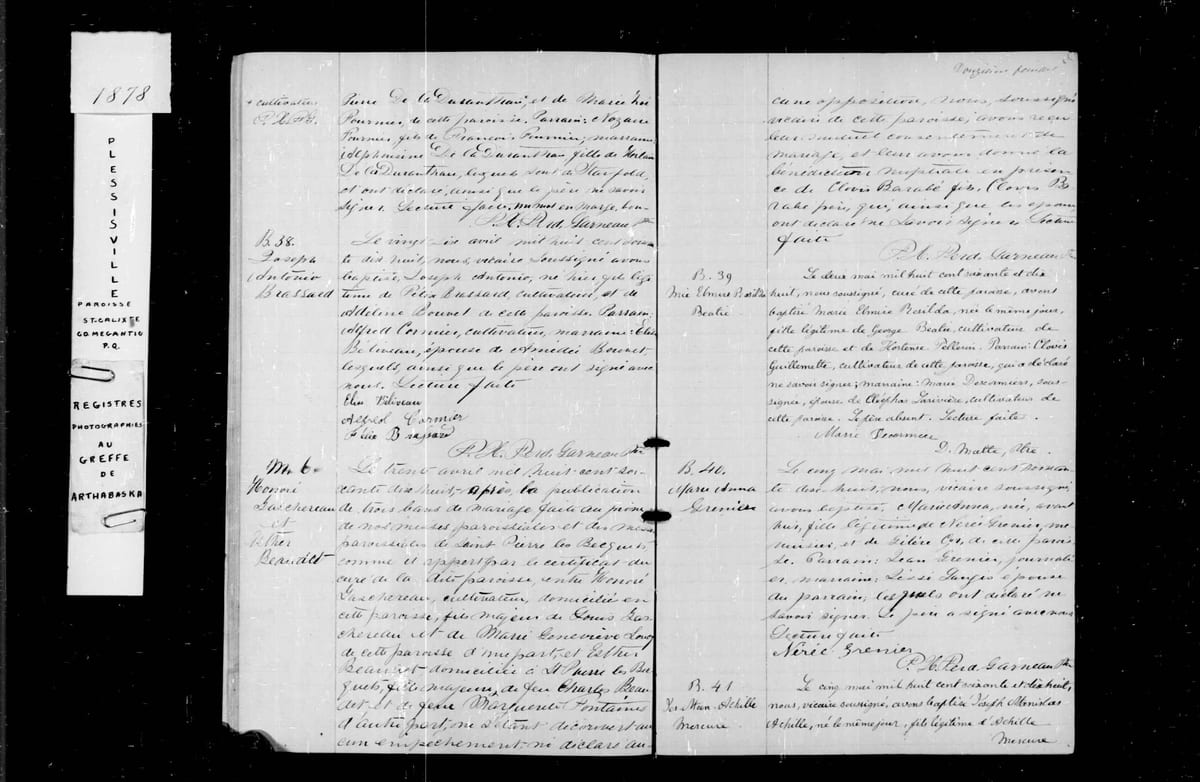 1878
PLESSISVILLE
PAROISSE
ST-CALIXTE
CO MEGANTIC
P.Q.
REGISTRES
PHOTOGRAPHIES
AU
GREFFE
DE
ARTHABASKA
+ cultivateur
Pierre De La Durantaie, et de Marie
Fournier, de cette paroisse. Parrain: Nazaire
Fournier, fils de François Fournier, marraine,
De La Durantaie fille de
De La Durantaie, lesquels sont de Stanfold,
et ont déclaré, ainsi que le père ne savoir
signer. Lecture faite, en marge, bon
Ferd. Garneau Ptre
B. 38.
Joseph
Antonio
Brassard
Le vingt six avril mil huit cent soixan-
te dix huit, nous, vicaire soussigné avons
baptisé, Joseph Antonio, né hier, fils légi-
time de Félix Brassard, cultivateur, et de
Adeline Bourret de cette paroisse. Parrain:
Alfred Cormier, cultivateur, marraine: Elise
Béliveau, épouse de Amédée Bourret
lesquels, ainsi que le père ont signé avec
nous. Lecture faite
Elise Béliveau
Alfred Cormier
Félix Brassard
Ferd. Garneau Ptre
M. 6.
Honoré
Laschereau
et
Esther
Beaudet
Le trente avril mil huit cent soi-
xante dix huit, après la publication
de trois bans de mariage faite au prône
de nos messes paroissiales et des messes
paroissiales de Saint Pierre les Becquets,
comme il appert par le certificat du
curé de la dite paroisse, entre Honoré
Laschereau, cultivateur, domicilié en
cette paroisse, fils majeur de Louis Las-
chereau et de Marie Geneviève
de cette paroisse d'une part, et Esther
Beaudet domiciliée à St Pierre les Bec-
quets, fille majeure, de feu Charles Beau-
det et de feue Marguerite Fontaine
d'autre part, ne s'étant découvert au-
cun empêchement ni déclaré au-
Douzième feuillet
cune opposition, nous, soussigné
vicaire de cette paroisse, avons reçu
leur mutuel consentement de
mariage, et leur avons donné la
bénédiction nuptiale en présen-
ce de Clovis Barabé fils, Clovis Ba-
rabé père, qui, ainsi que les époux
ont déclaré ne savoir signer. Lecture
faite
Ferd. Garneau Ptre
B. 39
Mie Elmire Resilda
Béatie
Le deux mai mil huit cent soixante et dix
huit, nous soussigné, curé de cette paroisse, avons
baptisé Marie Elmire Resilda, née le même jour,
fille légitime de George Béatie, cultivateur de
cette paroisse et de Hortense Pellerin. Parrain: Clovis
Guillemette, cultivateur de cette paroisse, qui a déclaré
ne savoir signer; marraine: Marie Descormiers, sous-
signée, épouse de Cléophas Larivière, cultivateur de
cette paroisse. Le père absent. Lecture faite.
Marie
D. Matte, Ptre.
B. 40.
Marie Anna
Grenier
Le cinq mai mil huit cent soixan-
te dix huit, nous, vicaire soussigné,
avons baptisé, Marie Anna, née, avant
hier, fille légitime de Nérée Grenier, me-
nuisier, et de Cyr, de cette parois-
se. Parrain: Jean Grenier, journali-
er, marraine: Sanges épouse
du parrain, lesquels ont déclaré ne
savoir signer. Le père a signé avec nous
Lecture faite
Nérée Grenier
Ferd Garneau Ptre
B. 41
Jos. Stan. Achille
Mercure
Le cinq mai mil huit cent soixante et dix huit,
nous, vicaire soussigné, avons baptisé Joseph Stanislas
Achille, né le même jour, fils légitime d'Achille
Mercure